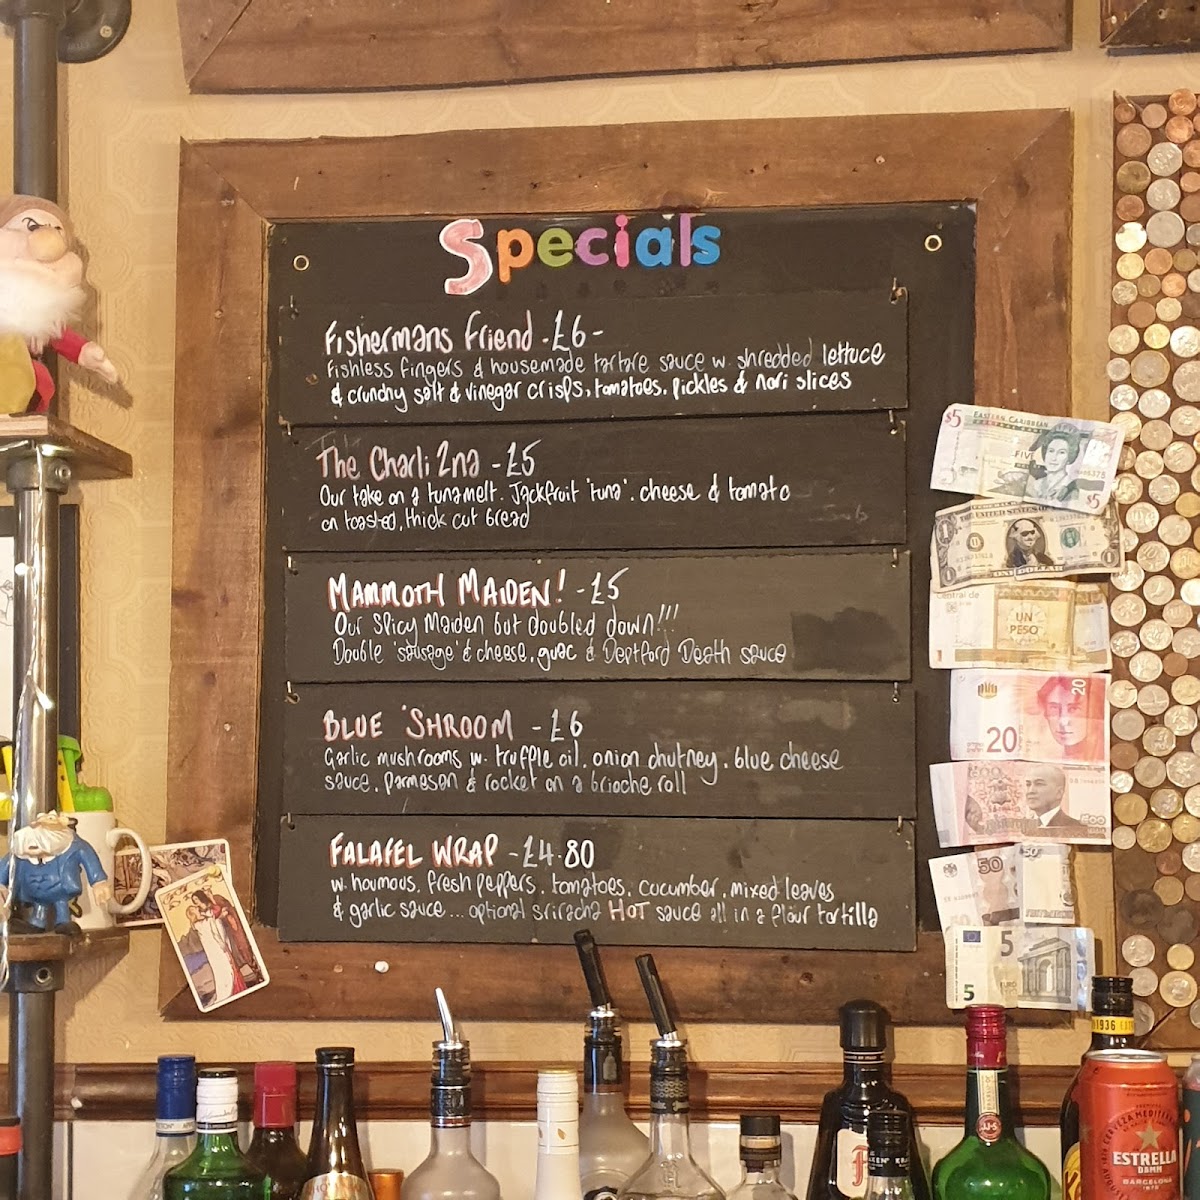 Specials
Fishermans Friend - £6 -
Fishless fingers & housemade tartare sauce w. shredded lettuce
& crunchy salt & vinegar crisps, tomatoes, pickles & nori slices
The Charli 2na - £5
Our take on a tunamelt. Jackfruit 'tuna', cheese & tomato
on toasted, thick cut bread
MAMMOTH MAIDEN! - £5
Our Spicy Maiden but doubled down!!!
Double 'sausage' & cheese, guac & Deptford Death sauce
BLUE 'SHROOM - £6
Garlic mushrooms w. truffle oil, onion chutney, blue cheese
sauce, parmesan & rocket on a brioche roll
FALAFEL WRAP - £4.80
w. houmous, fresh peppers, tomatoes, cucumber, mixed leaves
& garlic sauce... optional sriracha HOT sauce all in a flour tortilla
$5 EASTERN CARIBBEAN
FIVE
$5
THE UNITED STATES OF
ONE DOLLAR
UN
PESO
20
20
500
50
50
5
5
1936
ESTRELLA
DAMM
BARCELONA